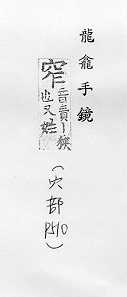 龍龕手鏡
窄音責﹣狹
也又姓
(穴部
P510)